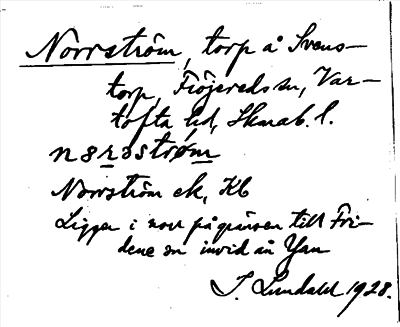 Norrström, torp å Svens-
torp, Fröjereds sn, Var-
tofta hd, Skarab. l.
Norrström ek, Kb
Ligger i norr på gränsen till Fri-
dene sn invid ån Yan
I. Lundahl 1928.